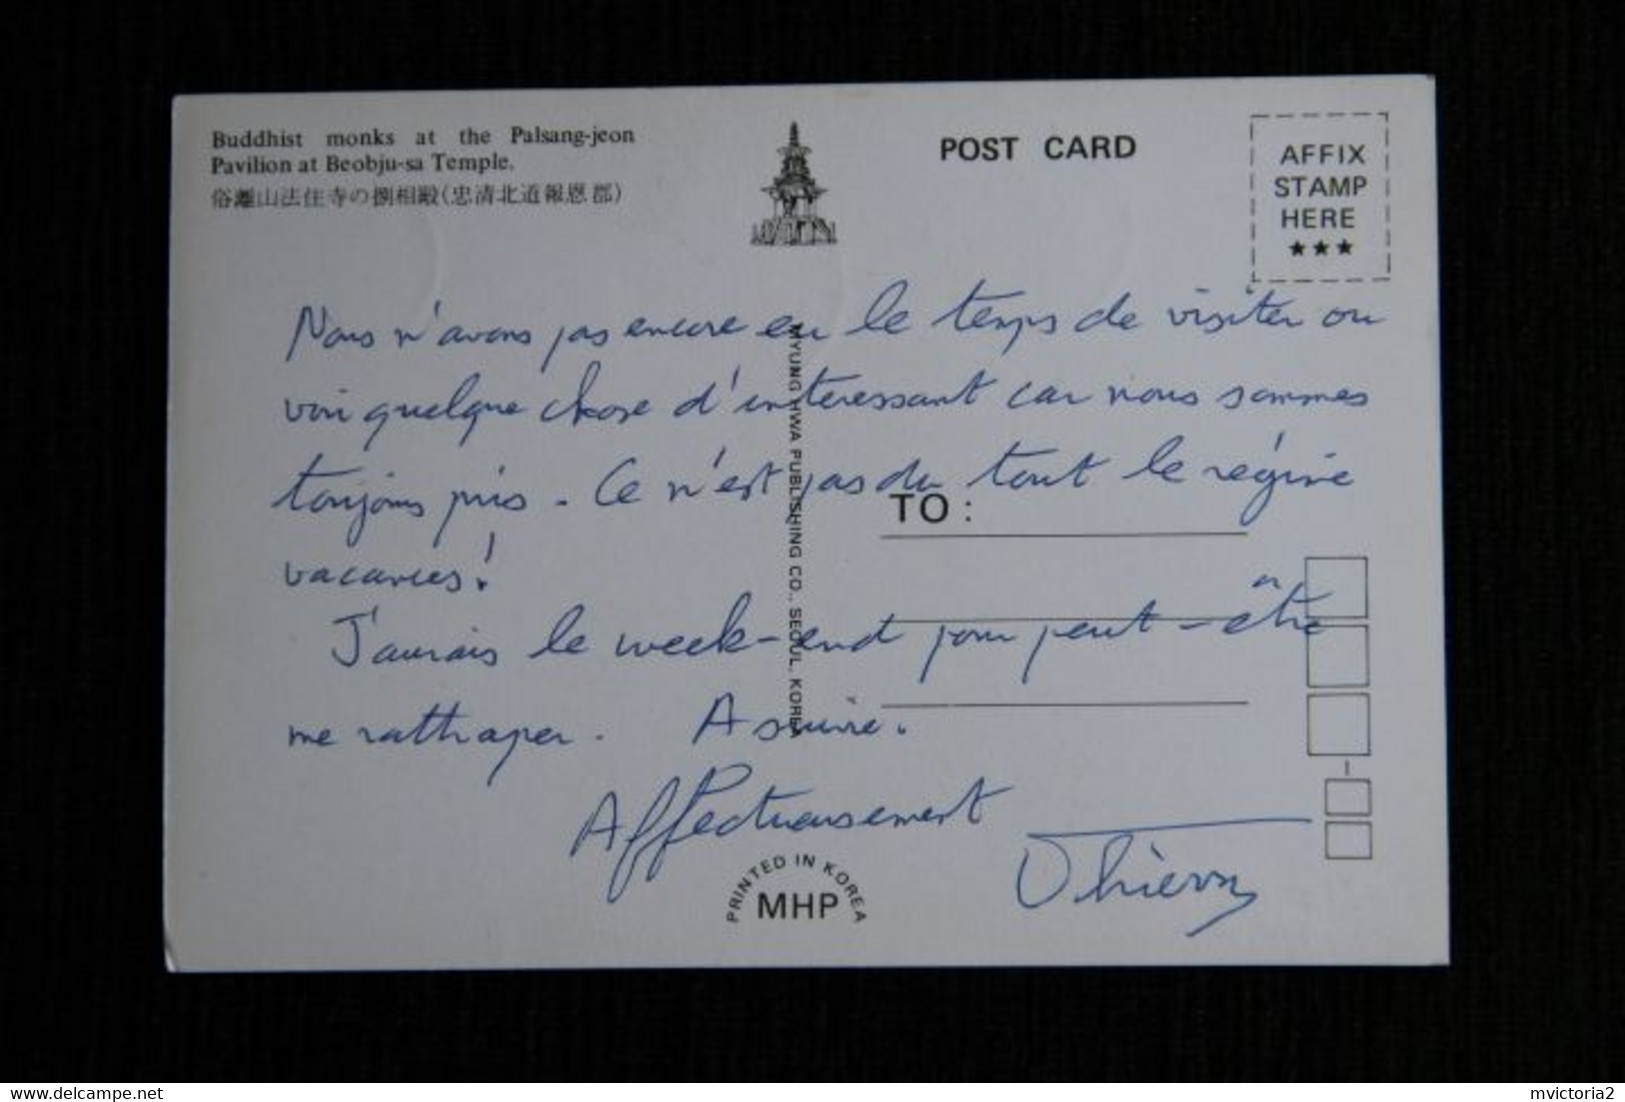 Buddhist monks at the Palsang-jeon
Pavilion at Beobju-sa Temple.
俗離山法住寺の捌相殿(忠清北道報恩郡)
POST CARD
AFFIX
STAMP
HERE
★★★
Nous n'avons pas encore eu le temps de visiter ou
voir quelque chose d'interessant car nous sommes
toujours pris. Ce n'est pas du tout le régime
vacances!
J'aurais le week-end pour peut-être
me rattraper. A suivre.
Affectueusement
Thierry
TO:
MYUNG HWA PUBLISHING CO., SEOUL, KOREA
PRINTED IN KOREA
MHP
http://www.delcampe.net
mvictoria2